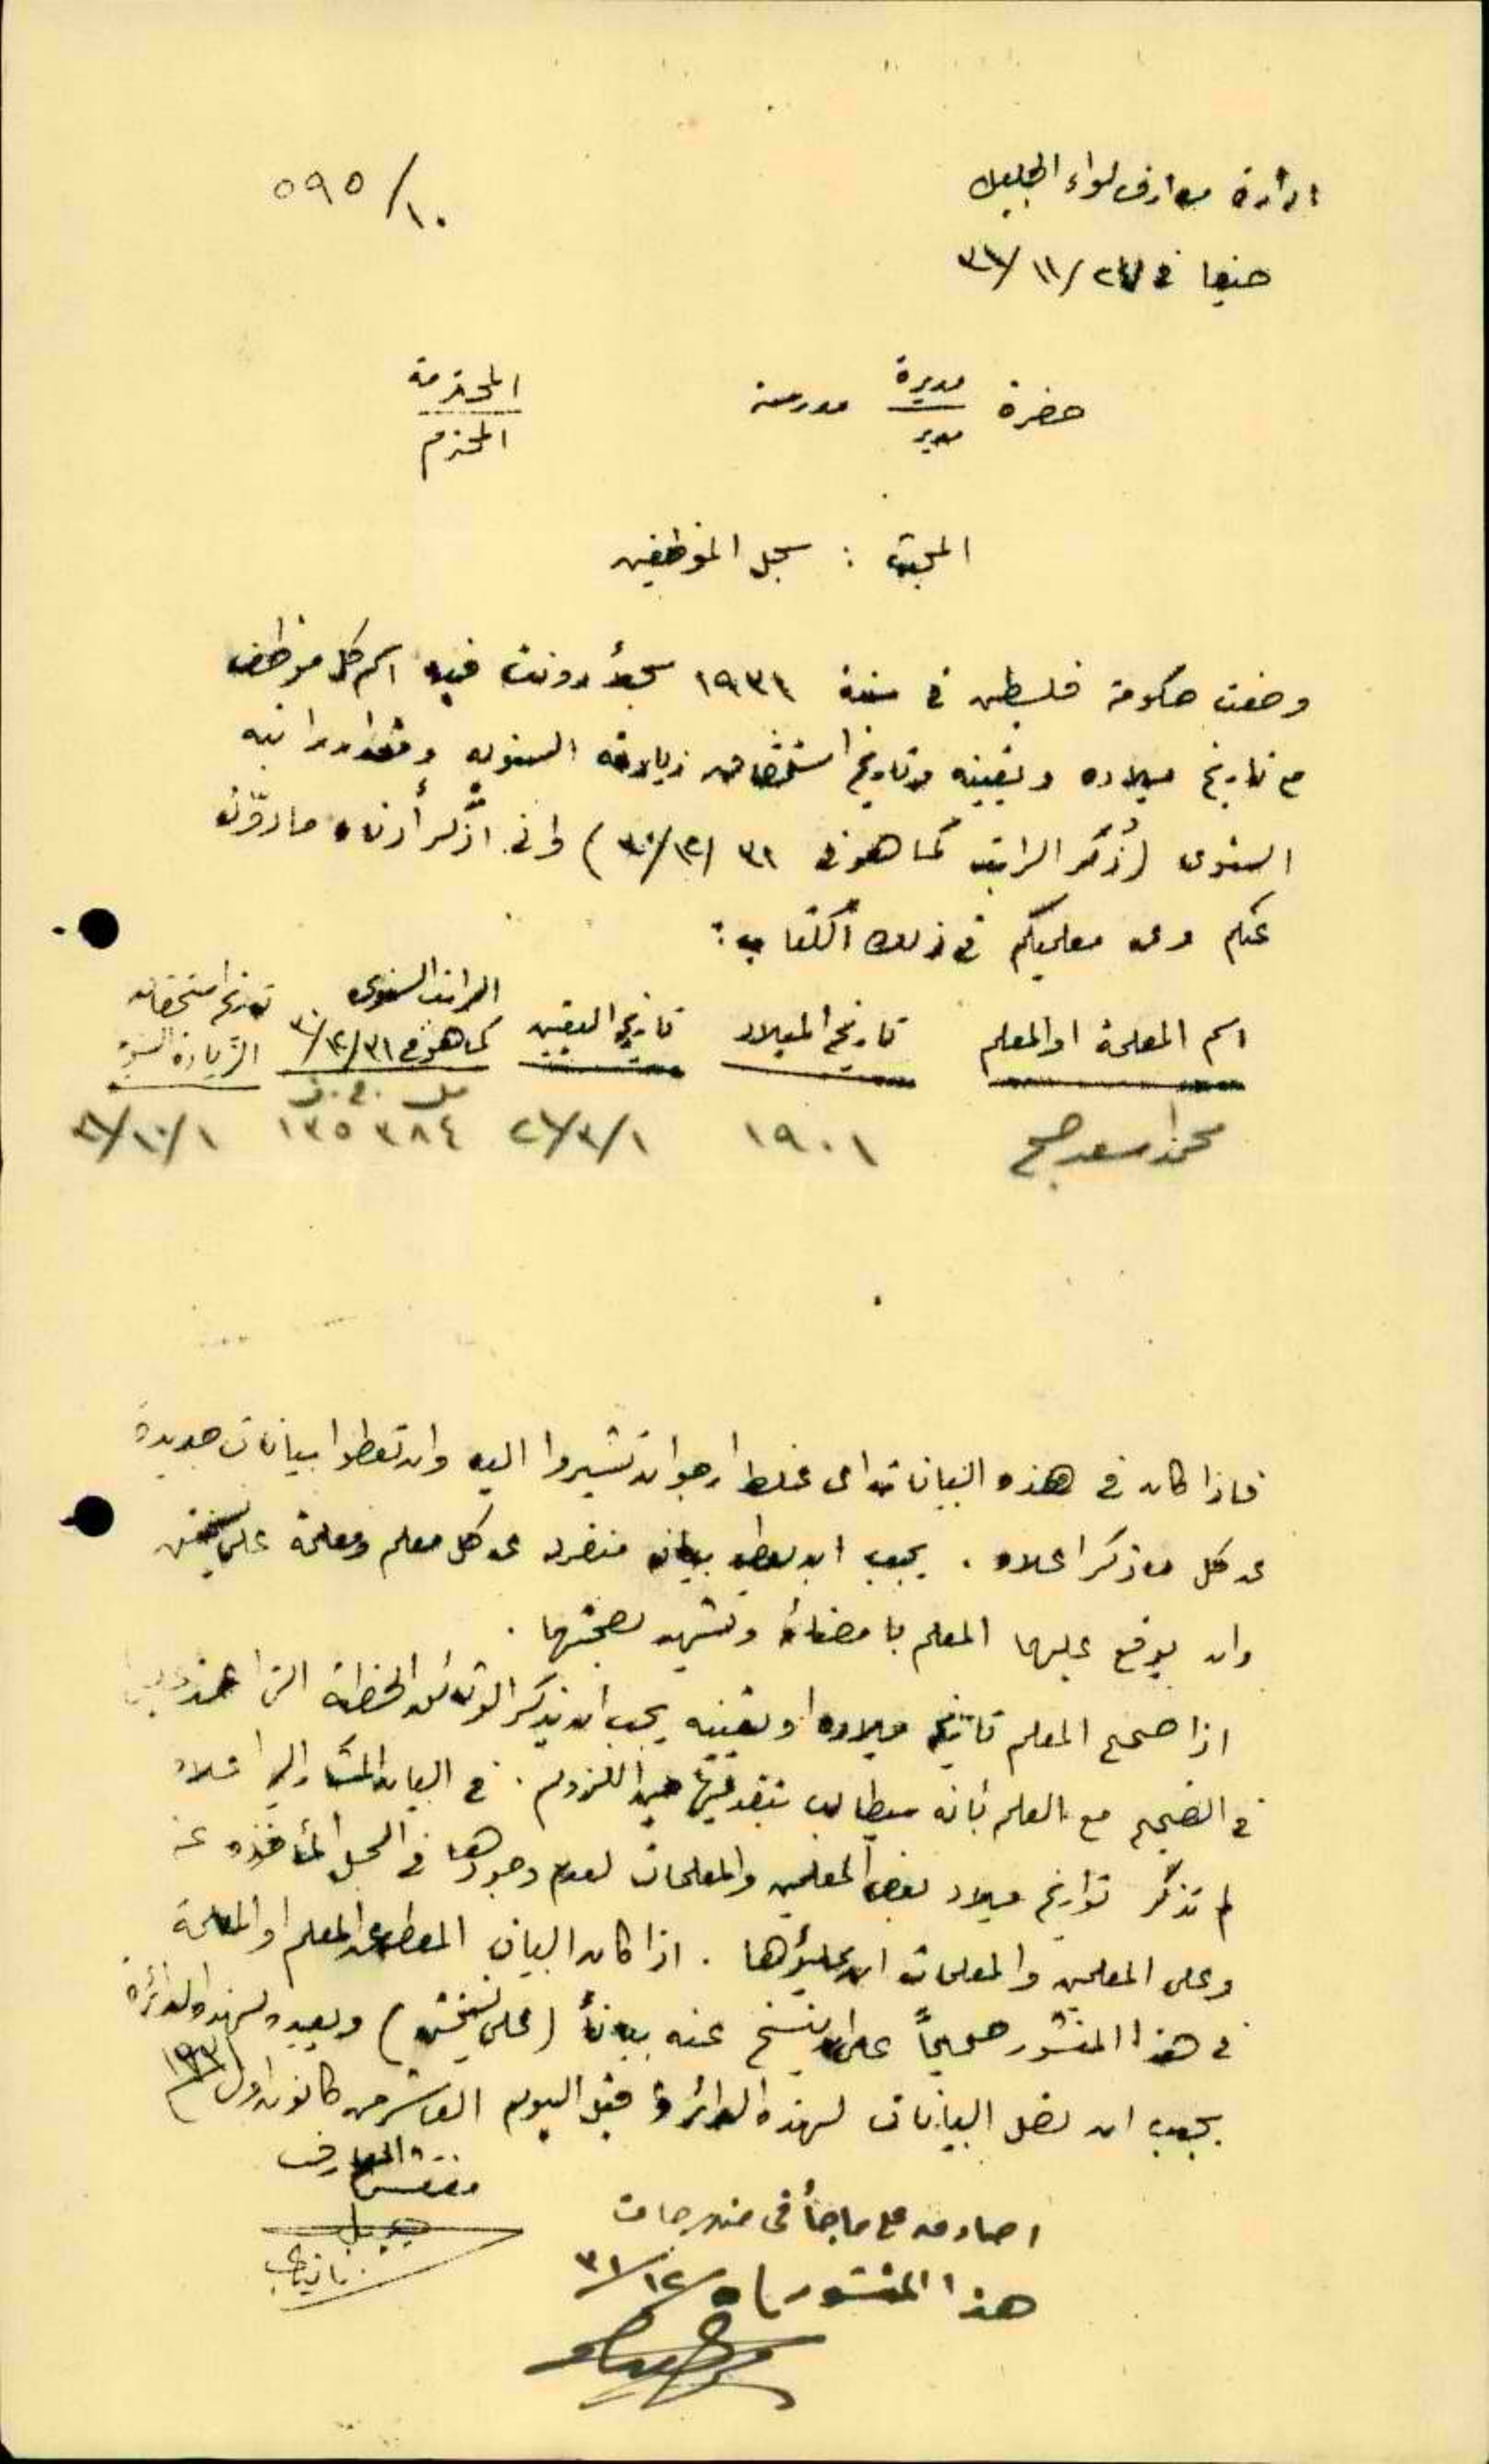 ادارة معارف لواء الجليل
٥٩٥/١٠
حيفا في ٢٧/١١/٣١
حضرة مديرة مدرسة المحترمة
مدير المحترم
المبحث : سجل الموظفين
وضعت حكومة فلسطين في سنة ١٩٣١ سجلاً دونت فيه اسم كل موظف
مع تاريخ ميلاده وتعيينه وتاريخ استحقاق زيادته السنويه ومقدار راتبه
السنوي (ذُكر الراتب كما هو في ٣١/١٢/٣٠) واني اذكر أدناه ما دوّن
عنكم وعن معلميكم في ذلك الكتاب :
اسم المعلمة او المعلم تاريخ الميلاد تاريخ التعيين الراتب السنوي تاريخ استحقاق
كما هو في ٣١/١٢/٣٠ الزيادة السنوية
مل ج.ف
محمد اسعد صبح ١٩٠١ ٢٦/٣/١ ٣٨٤ ١٣٥ ١٠/١
فاذا كان في هذه البيانات اى غلط ارجو ان تشيروا اليه وان تعطوا بيانات جديدة
عن كل ما ذكر اعلاه . يجب ان يعطى بيان منفرد عن كل معلم ومعلمة على نسختين
وان يوقع عليها المعلم بامضائه وتشهد بصحتها .
اذا صحح المعلم تاريخ ميلاده او تعيينه يجب ان يذكر الوثائق الخطية التي اعتمد عليها
في التصحيح مع العلم بأنه سيطالب بتقديمها حين اللزوم . في البيان المشار اليه اعلاه
لم تذكر تواريخ ميلاد بعض المعلمين والمعلمات لعدم وجودها في السجل المأخوذه عنه
وعلى المعلمين والمعلمات ان يملؤها . اذا كان البيان المعطى عن المعلم او المعلمة
في هذا المنشور صحيحاً عليه ان ينسخ عنه بياناً (على نسختين) ويعيده لهذه الدائرة
يجب ان تصل البيانات لهذه الدائرة قبل اليوم العاشر من كانون اول ١٩٣١
مفتش المعارف
اصادق على ما جأ في مندرجات
هذا المنشور ٥/١٢/٣١